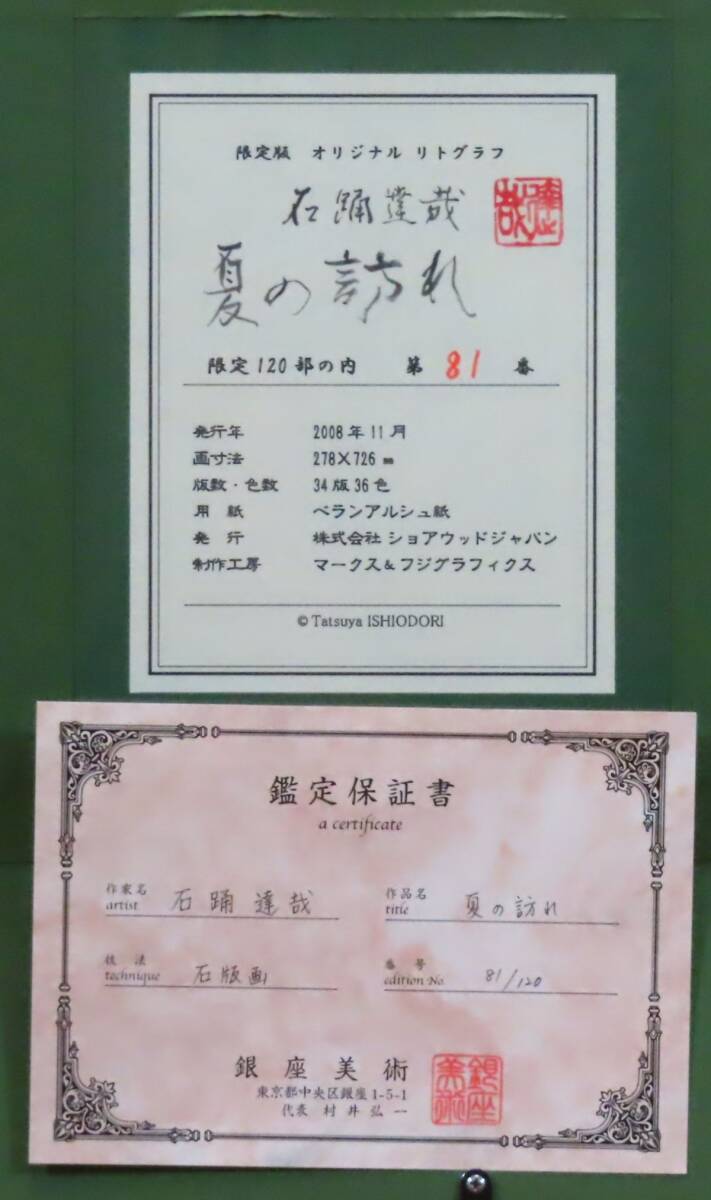 限定版 オリジナル リトグラフ
石踊達哉
夏の訪れ
限定120部の内 第 81 番
発行年 2008年11月
画寸法 278×726㎜
版数・色数 34版36色
用紙 ベランアルシュ紙
発行 株式会社 ショアウッドジャパン
制作工房 マークス&フジグラフィクス
© Tatsuya ISHIODORI
鑑定保証書
a certificate
作家名 石踊達哉
artist
作品名 夏の訪れ
title
技法 石版画
technique
番号 81/120
edition No.
銀座美術
東京都中央区銀座1-5-1
代表 村井弘一
銀座美術